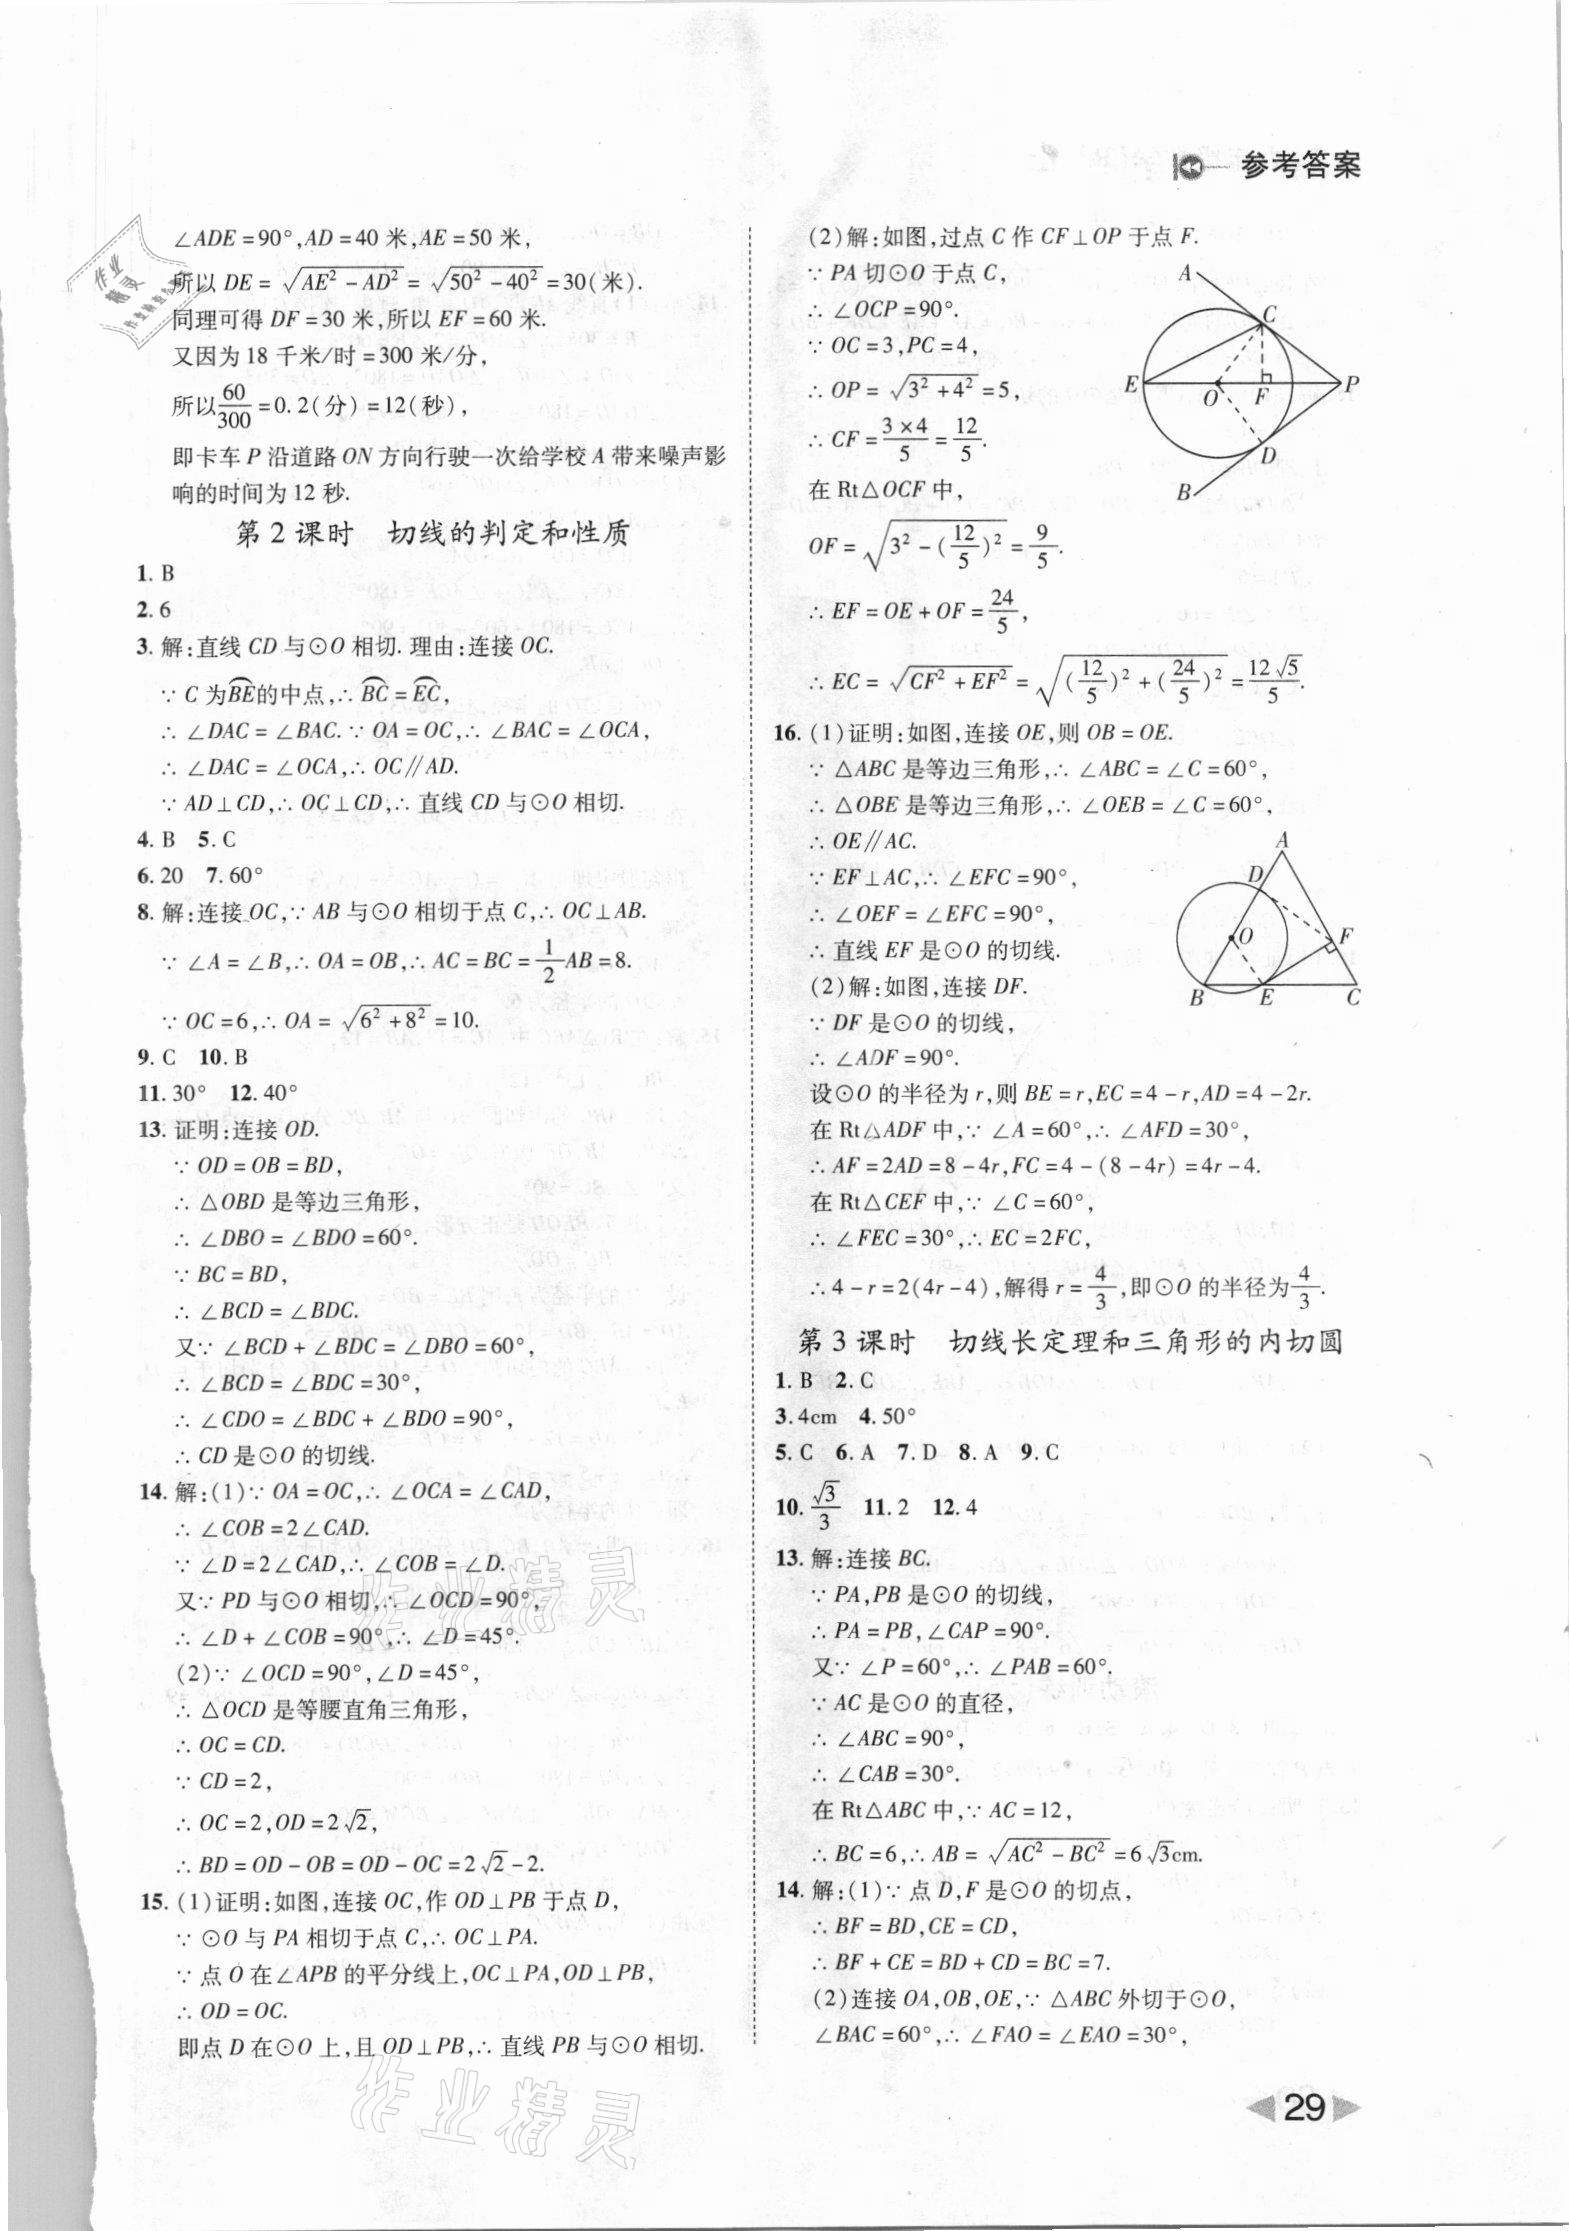 参考答案
∠ADE=90°,AD=40 米,AE=50 米,
所以 DE=√(AE²-AD²)=√(50²-40²)=30(米).
同理可得 DF=30 米,所以 EF=60 米.
又因为 18 千米/时=300 米/分,
所以60/300=0.2(分)=12(秒),
即卡车 P 沿道路 ON 方向行驶一次给学校 A 带来噪声影
响的时间为 12 秒.
第 2 课时 切线的判定和性质
1. B
2. 6
3. 解:直线 CD 与⊙O 相切. 理由:连接 OC.
∵ C 为B͡E的中点,∴ B͡C=E͡C,
∴ ∠DAC=∠BAC. ∵ OA=OC,∴ ∠BAC=∠OCA,
∴ ∠DAC=∠OCA,∴ OC∥AD.
∵ AD⊥CD,∴ OC⊥CD,∴ 直线 CD 与⊙O 相切.
4. B 5. C
6. 20 7. 60°
8. 解:连接 OC,∵ AB 与⊙O 相切于点 C,∴ OC⊥AB.
∵ ∠A=∠B,∴ OA=OB,∴ AC=BC=1/2AB=8.
∵ OC=6,∴ OA=√(6²+8²)=10.
9. C 10. B
11. 30° 12. 40°
13. 证明:连接 OD.
∵ OD=OB=BD,
∴ △OBD 是等边三角形,
∴ ∠DBO=∠BDO=60°.
∵ BC=BD,
∴ ∠BCD=∠BDC.
又∵ ∠BCD+∠BDC=∠DBO=60°,
∴ ∠BCD=∠BDC=30°,
∴ ∠CDO=∠BDC+∠BDO=90°,
∴ CD 是⊙O 的切线.
14. 解:(1)∵ OA=OC,∴ ∠OCA=∠CAD,
∴ ∠COB=2∠CAD.
∵ ∠D=2∠CAD,∴ ∠COB=∠D.
又∵ PD 与⊙O 相切,∴ ∠OCD=90°,
∴ ∠D+∠COB=90°,∴ ∠D=45°.
(2)∵ ∠OCD=90°,∠D=45°,
∴ △OCD 是等腰直角三角形,
∴ OC=CD.
∵ CD=2,
∴ OC=2,OD=2√2,
∴ BD=OD-OB=OD-OC=2√2-2.
15. (1)证明:如图,连接 OC,作 OD⊥PB 于点 D,
∵ ⊙O 与 PA 相切于点 C,∴ OC⊥PA.
∵ 点 O 在∠APB 的平分线上,OC⊥PA,OD⊥PB,
∴ OD=OC.
即点 D 在⊙O 上,且 OD⊥PB,∴ 直线 PB 与⊙O 相切.
(2)解:如图,过点 C 作 CF⊥OP 于点 F.
∵ PA 切⊙O 于点 C,
∴ ∠OCP=90°.
∵ OC=3,PC=4,
∴ OP=√(3²+4²)=5,
∴ CF=3×4/5=12/5.
在 Rt△OCF 中,
OF=√(3²-(12/5)²)=9/5.
∴ EF=OE+OF=24/5,
∴ EC=√(CF²+EF²)=√((12/5)²+(24/5)²)=12√5/5.
A
C
E
O
F
P
D
B
16. (1)证明:如图,连接 OE,则 OB=OE.
∵ △ABC 是等边三角形,∴ ∠ABC=∠C=60°,
∴ △OBE 是等边三角形,∴ ∠OEB=∠C=60°,
∴ OE∥AC.
∵ EF⊥AC,∴ ∠EFC=90°,
∴ ∠OEF=∠EFC=90°,
∴ 直线 EF 是⊙O 的切线.
(2)解:如图,连接 DF.
∵ DF 是⊙O 的切线,
∴ ∠ADF=90°.
A
D
O
F
B
E
C
设⊙O 的半径为 r,则 BE=r,EC=4-r,AD=4-2r.
在 Rt△ADF 中,∵ ∠A=60°,∴ ∠AFD=30°,
∴ AF=2AD=8-4r,FC=4-(8-4r)=4r-4.
在 Rt△CEF 中,∵ ∠C=60°,
∴ ∠FEC=30°,∴ EC=2FC,
∴ 4-r=2(4r-4),解得 r=4/3,即⊙O 的半径为4/3.
第 3 课时 切线长定理和三角形的内切圆
1. B 2. C
3. 4cm 4. 50°
5. C 6. A 7. D 8. A 9. C
10. √3/3 11. 2 12. 4
13. 解:连接 BC.
∵ PA,PB 是⊙O 的切线,
∴ PA=PB,∠CAP=90°.
又∵ ∠P=60°,∴ ∠PAB=60°.
∵ AC 是⊙O 的直径,
∴ ∠ABC=90°,
∴ ∠CAB=30°.
在 Rt△ABC 中,∵ AC=12,
∴ BC=6,∴ AB=√(AC²-BC²)=6√3cm.
14. 解:(1)∵ 点 D,F 是⊙O 的切点,
∴ BF=BD,CE=CD,
∴ BF+CE=BD+CD=BC=7.
(2)连接 OA,OB,OE,∵ △ABC 外切于⊙O,
∠BAC=60°,∴ ∠FAO=∠EAO=30°,
29
作业精灵
作业精灵
作业
精灵